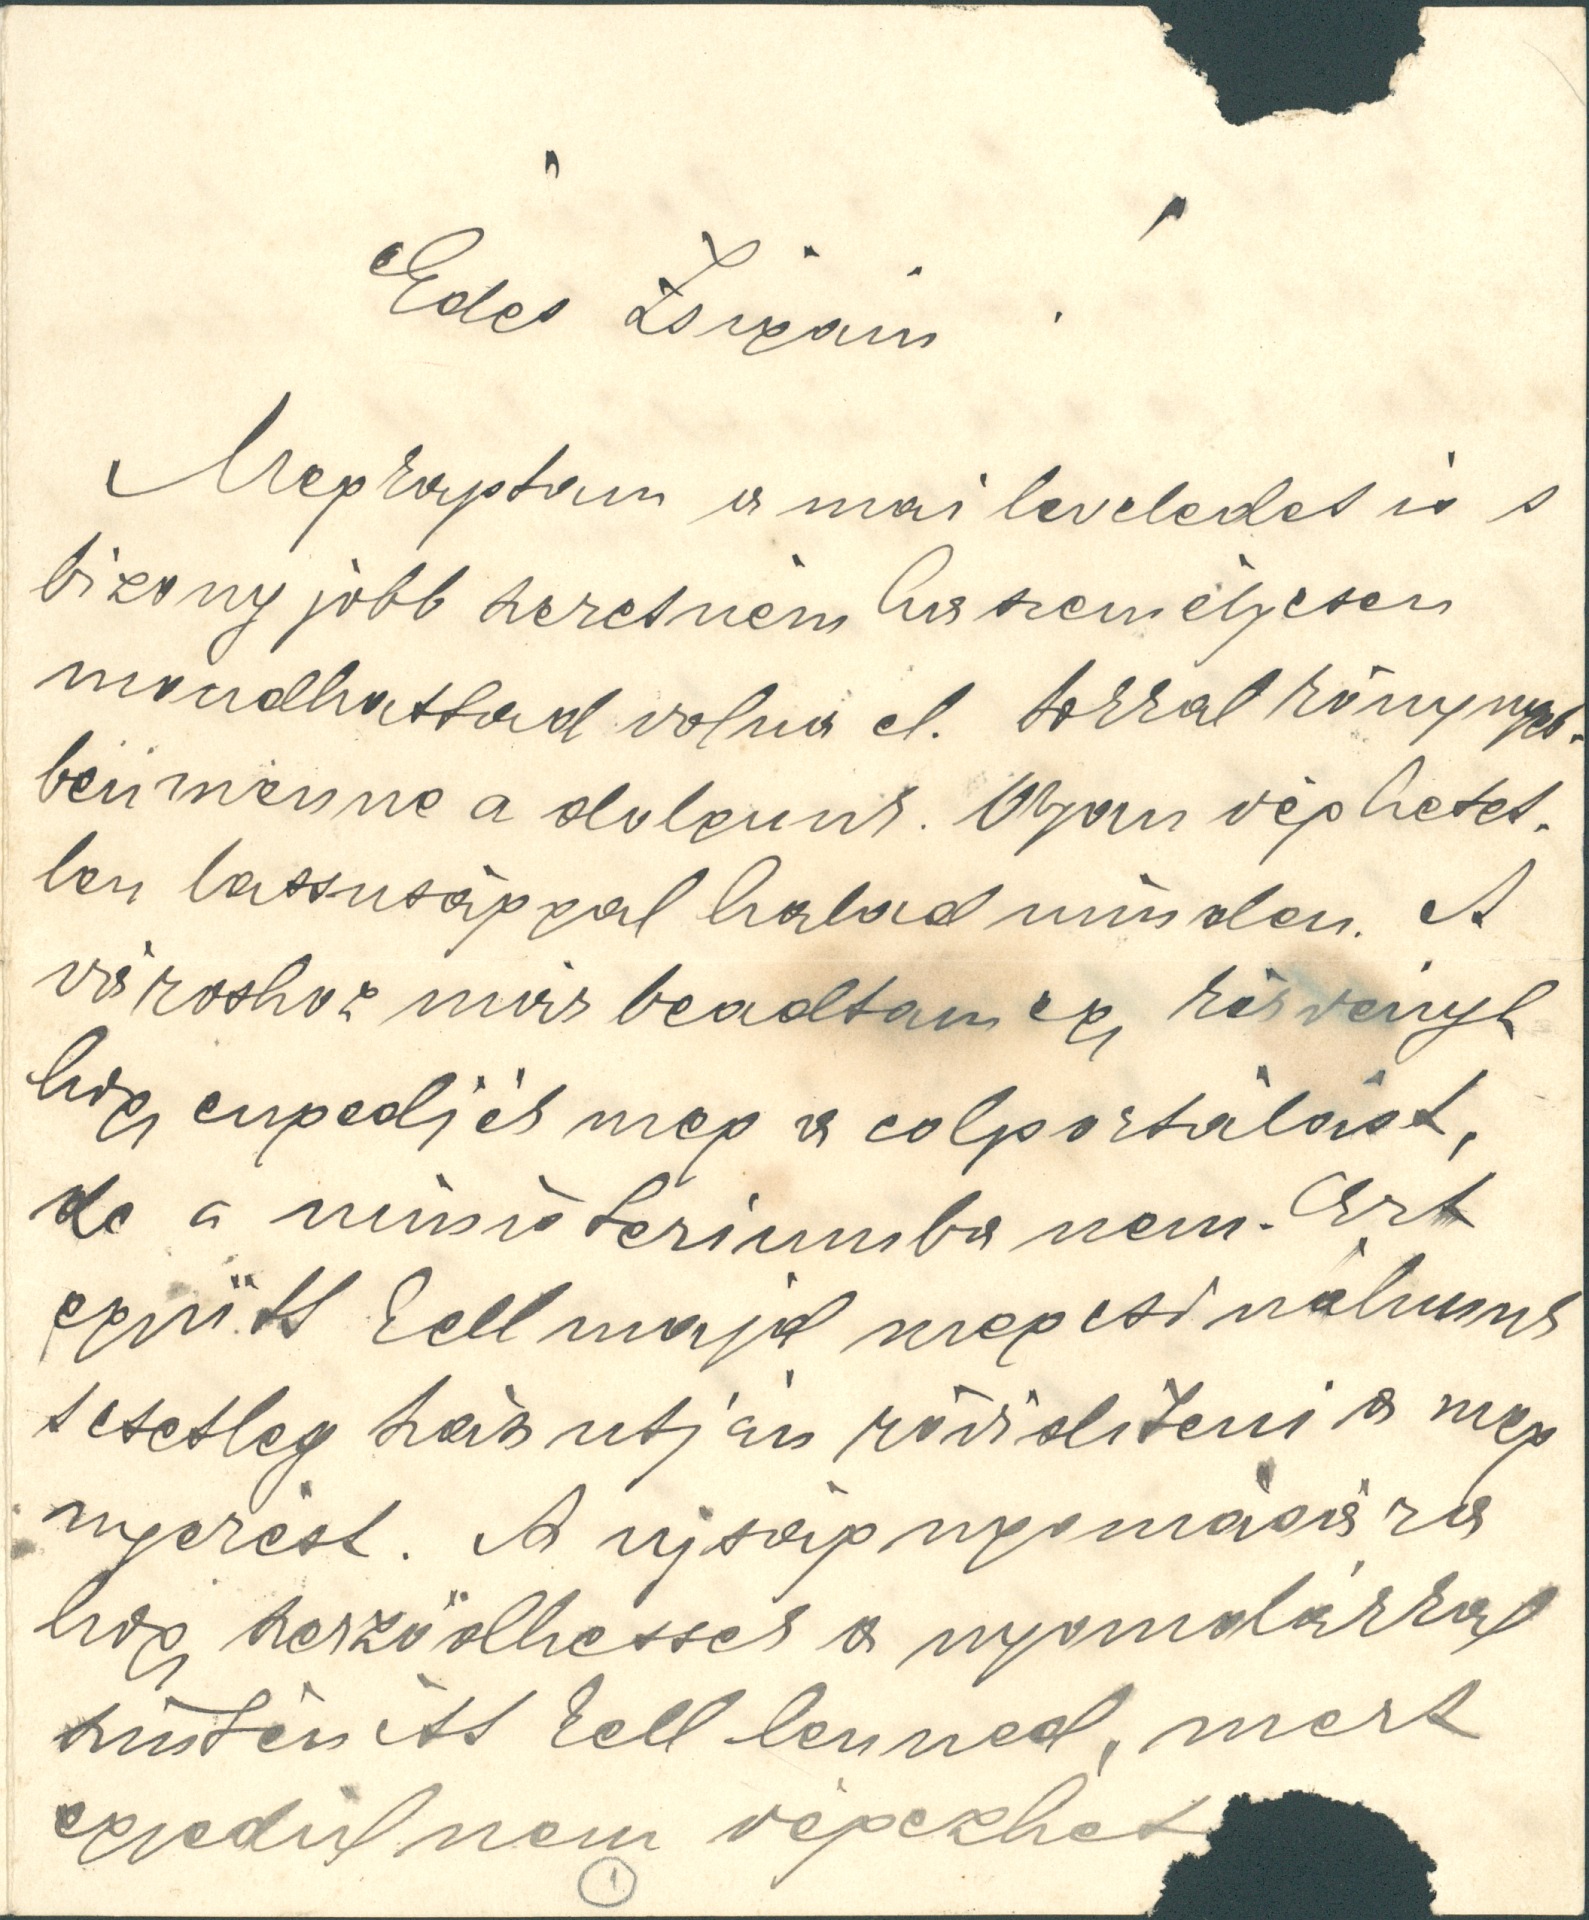 Édes Zsigám!
Megkaptam a mai leveledet is s
bizony jobb szeretném ha személyesen
mondhattad volna el. Sokkal könnyeb-
ben menne a dolgunk. Olyan véghetet-
len lassusággal halad minden. A
városhoz már beadtam egy kérvényt
hogy engedjék meg a colportálást,
de a ministeriumba nem. Azt
együtt kell majd megcsinálnunk
s esetleg házi utján röviditeni a meg
nyerést. A ujság nyomására
hogy szerződhessek a nyomdákkal
szintén itt kell lenned, mert
egyedül nem végezhet
1